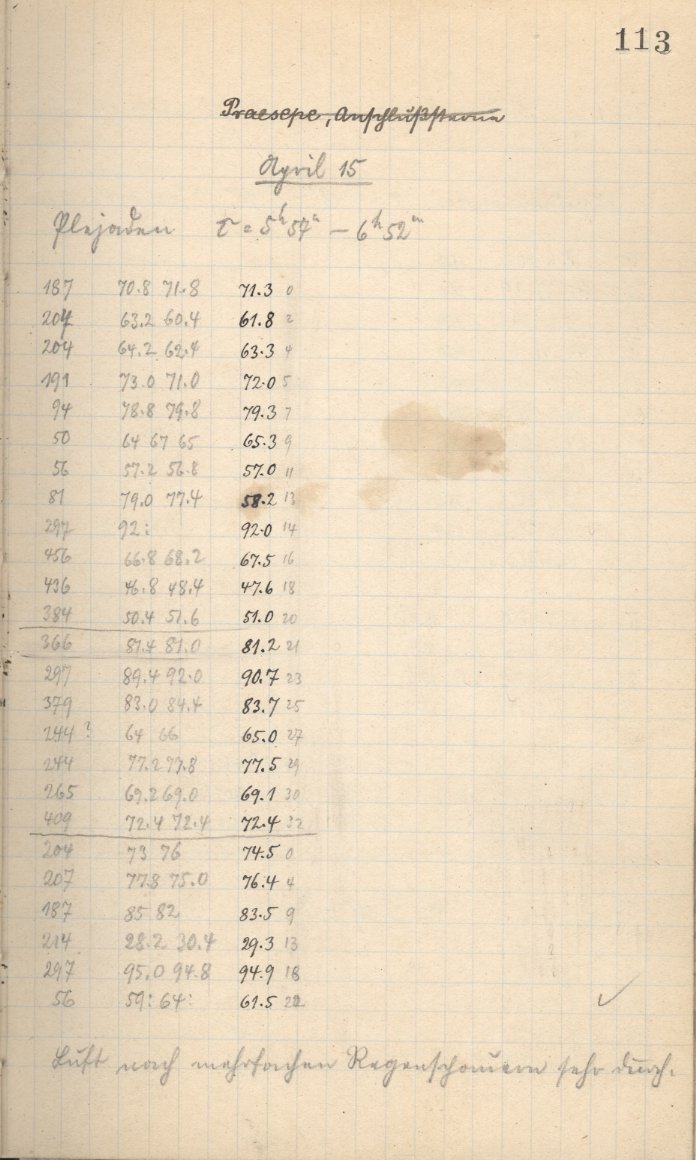 113
Praesepe, Anschlußsterne
April 15
Plejaden τ = 5h 57m – 6h 52m
187 70.8 71.8 71.3 0
207 63.2 60.4 61.8 2
204 64.2 62.4 63.3 4
191 73.0 71.0 72.0 5
94 78.8 79.8 79.3 7
50 64 67 65 65.3 9
56 57.2 56.8 57.0 11
81 79.0 77.4 58.2 13
297 92: 92.0 14
456 66.8 68.2 67.5 16
436 46.8 48.4 47.6 18
384 50.4 51.6 51.0 20
366 81.4 81.0 81.2 21
297 89.4 92.0 90.7 23
379 83.0 84.4 83.7 25
244? 64 66 65.0 27
244 77.2 77.8 77.5 29
265 69.2 69.0 69.1 30
409 72.4 72.4 72.4 32
204 73 76 74.5 0
207 77.8 75.0 76.4 4
187 85 82 83.5 9
214 28.2 30.4 29.3 13
297 95.0 94.8 94.9 18
56 59: 64: 61.5 22
Luft nach mehrfachen Regenschauern sehr